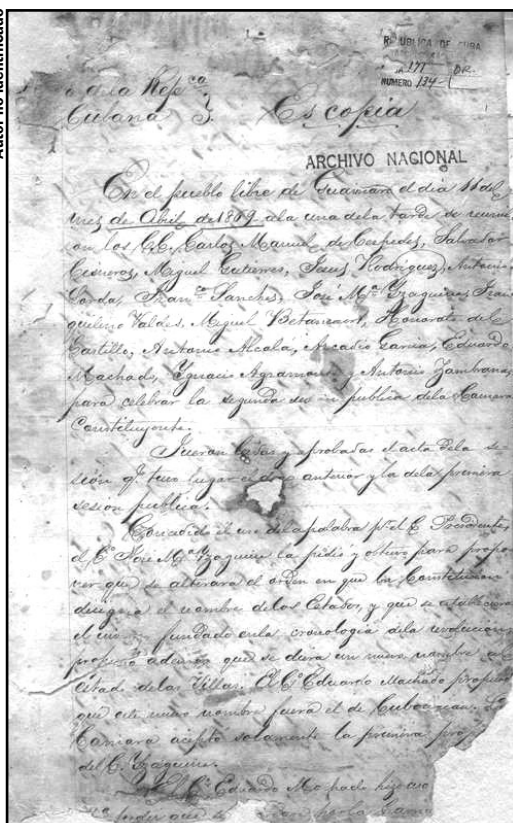 Autor no identificado
REPUBLICA DE CUBA
177
NUMERO 134-1
de la Repca
Cubana
Es copia
ARCHIVO NACIONAL
En el pueblo libre de Guaimaro el dia 11 del
mes de Abril de 1869 a la una de la tarde se reunie
ron los C.C. Carlos Manuel de Cespedes, Salvador
Cisneros, Miguel Gutierres, Jesus Rodriguez, Antonio
Lorda, Franco Sanchez, José Ma Yzaguirre, Tran
quilino Valdes, Miguel Betancourt, Honorato del
Castillo, Antonio Alcala, Arcadio Garcia, Eduardo
Machado, Ygnacio Agramonte y Antonio Zambrana,
para celebrar la segunda sesion publica de la Camara
Constituyente.
Fueron leidas y aprobadas el acta de la se
sión q. tuvo lugar anterior y la de la primera
sesion publica.
Concedido el uso de la palabra pr el C. Presidente,
el C. José Ma Yzaguirre la pidio y obtuvo para propo
ner que se alterara el orden en que la Constitucion
designa el nombre de los Estados, y que se estableciera
el fundado en la cronologia de la revolucion
propuso ademas que se diera un nuevo nombre al
Estado de las Villas. El Co Eduardo Machado propuso
que este nuevo nombre fuera el de Cubanacan. La
Camara aceptó solamente la primera prop
del C. Yzaguirre.
El Co Eduardo Machado hizo uso
pedir que se